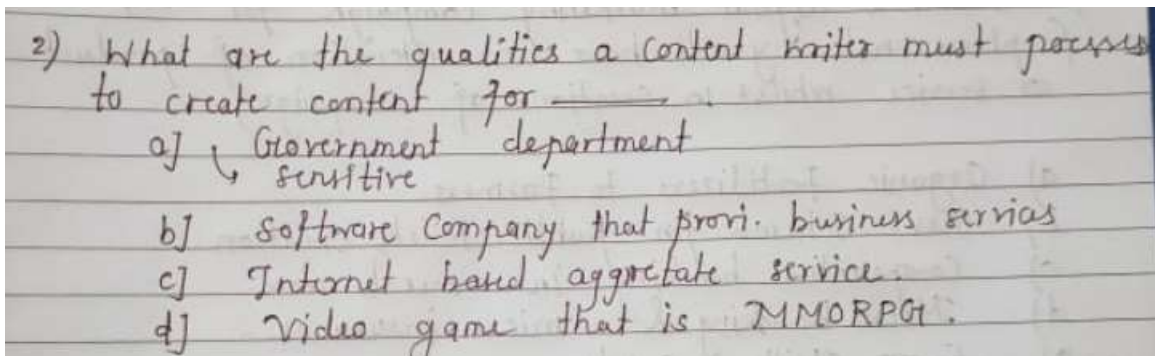 2) What are the qualities a content writer must possess
to create content for ______.
a] Government department
↳ sensitive
b] Software Company that provi. business services
c] Internet based aggretate service.
d] Video game that is MMORPG.